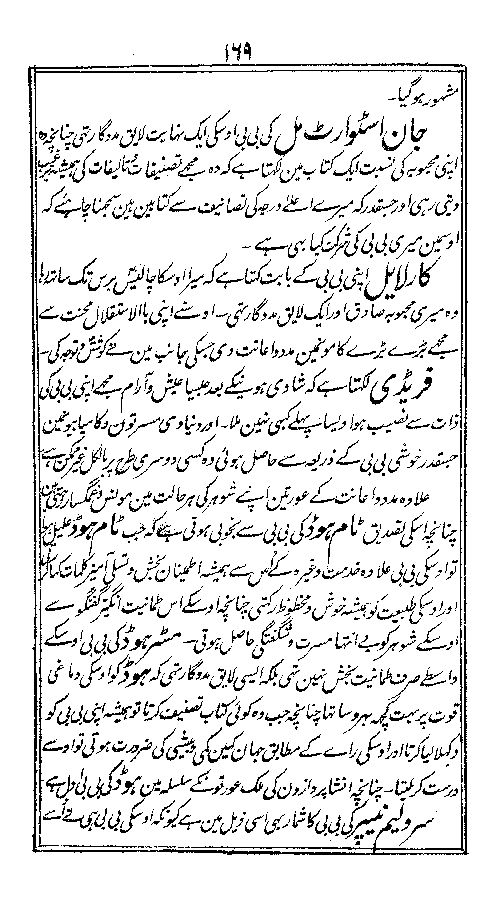 ۱۶۹
مشہور ہوگیا۔
جان اسٹوارٹ مل کی بی بی اوسکی ایک نہایت لایق مددگار تہی چنانچہ وہ
اپنی محبوبہ کی نسبت ایک کتاب مین لکہتا ہے کہ وہ مجھے تصنیفات و تالیفات کی ہمیشہ
دیتی رہی اور جسقدر کہ میرے اعلےٰ درجہ کی تصانیف سے کتابین ہین سمجہنا چاہئے کہ
اوسمین میری بی بی کی شرکت کیا بہی ہے ۔
کارلایل اپنی بی بی کے بابت کہتا ہے کہ میرا اوسکا چالیس برس تک ساتھ رہا
وہ میری محبوبہ صادق اور ایک لایق مددگار تہی ۔ اوسنے اپنی باالاستقلال محنت سے
مجھے بڑے بڑے کامونمین مدد و اعانت دی جسکی جانب مین نے کوشش و توجہ کی ۔
فریڈی لکہتا ہے کہ شادی ہونیکے بعد جیسا عیش و آرام مجھے اپنی بی بی کی
ذات سے نصیب ہوا ویسا پہلے کبہی نہین ملا ۔ اور دنیاوی مسرتون و کامیابیونمین
جسقدر خوشی بی بی کے ذریعہ سے حاصل ہوئی وہ کسی دوسری طرح پر بالکل غیر ممکن ہے
علاوہ مدد و اعانت کے عورتین اپنے شوہر کی ہر حالت مین مونس و غمگسار رہتی ہین
چنانچہ اسکی تصدیق ٹام ہوڈ کی بی بی سے بخوبی ہوتی ہے کہ جب ٹام ہوڈ علیل ہوا
تو اوسکی بی بی علاوہ خدمت وغیرہ کے اوس سے ہمیشہ اطمینان بخش و تسلی آمیز کلمات کہا کرتی
اور اوسکی طبیعت کو ہمیشہ خوش و محظوظ رکہتی چنانچہ اوسکے اس طمانیت انگیز گفتگو سے
اوسکے شوہر کو بے انتہا مسرت و شگفتگی حاصل ہوتی ۔ مسٹر ہوڈ کی بی بی اوسکے
واسطے صرف طمانیت بخش نہین تہی بلکہ ایسی لایق مددگار تہی کہ ہوڈ کو اوسکی دماغی
قوت پر بہت کچہہ بہروسا تہا چنانچہ جب وہ کوئی کتاب تصنیف کرتا تو ہمیشہ اپنی بی بی کو
دکہلا لیا کرتا اور اوسکی راے کے مطابق جہان کہین کمی و بیشی کی ضرورت ہوتی تو اوسے
درست کر لیتا ۔ چنانچہ انشا پردازون کی ملک عورتونکے سلسلہ مین ہوڈ کی بی بی اول ہے
سر ولیم نیپیر کی بی بی کا شمار بہی اسی ذیل مین ہے کیونکہ اوسکی بی بی ہی نے اُسے